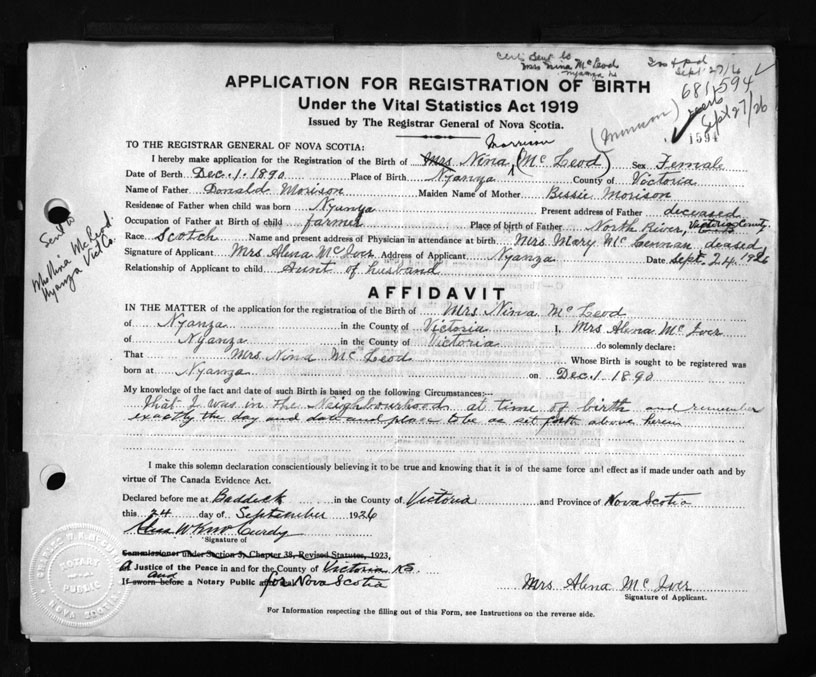 Cert. Sent to
Mrs Nina McLeod
Nyanza NS
Sept 27/26
681,594
Sept 27/26
(Morrison)
1594
APPLICATION FOR REGISTRATION OF BIRTH
Under the Vital Statistics Act 1919
Issued by The Registrar General of Nova Scotia.
TO THE REGISTRAR GENERAL OF NOVA SCOTIA:
Morrison
I hereby make application for the Registration of the Birth of Mrs Nina (McLeod) Sex Female
Date of Birth Dec. 1. 1890 Place of Birth Nyanza County of Victoria
Name of Father Donald Morison Maiden Name of Mother Bissie Morison
Residence of Father when child was born Nyanza Present address of Father deceased
Occupation of Father at Birth of child farmer Place of birth of Father North River, Victoria County
Race Scotch Name and present address of Physician in attendance at birth Mrs. Mary McLennan deased
Signature of Applicant Mrs Alena McIver Address of Applicant Nyanza Date Sept. 24. 1926
Relationship of Applicant to child Aunt of husband
Sent to
Mrs Nina McLeod.
Nyanza Vict Co.
AFFIDAVIT
IN THE MATTER of the application for the registration of the Birth of Mrs Nina McLeod
of Nyanza in the County of Victoria I, Mrs Alena McIver
of Nyanza in the County of Victoria do solemnly declare:
That Mrs Nina McLeod Whose Birth is sought to be registered was
born at Nyanza on Dec. 1. 1890
My knowledge of the fact and date of such Birth is based on the following Circumstances:—
that I was in the Neighbourhood at time of birth and remember
exactly the day and date and place to be as set forth above herein
I make this solemn declaration conscientiously believing it to be true and knowing that it is of the same force and effect as if made under oath and by
virtue of The Canada Evidence Act.
Declared before me at Baddeck in the County of Victoria and Province of Nova Scotia
this 24 day of September 1926
Chas W K McCurdy
Signature of
Commissioner under Section 3, Chapter 38, Revised Statutes, 1923,
A Justice of the Peace in and for the County of Victoria NS.
and
If sworn before a Notary Public for Nova Scotia
Mrs Alena McIver
Signature of Applicant.
For Information respecting the filling out of this Form, see Instructions on the reverse side.
NOTARY
PUBLIC
NOVA SCOTIA